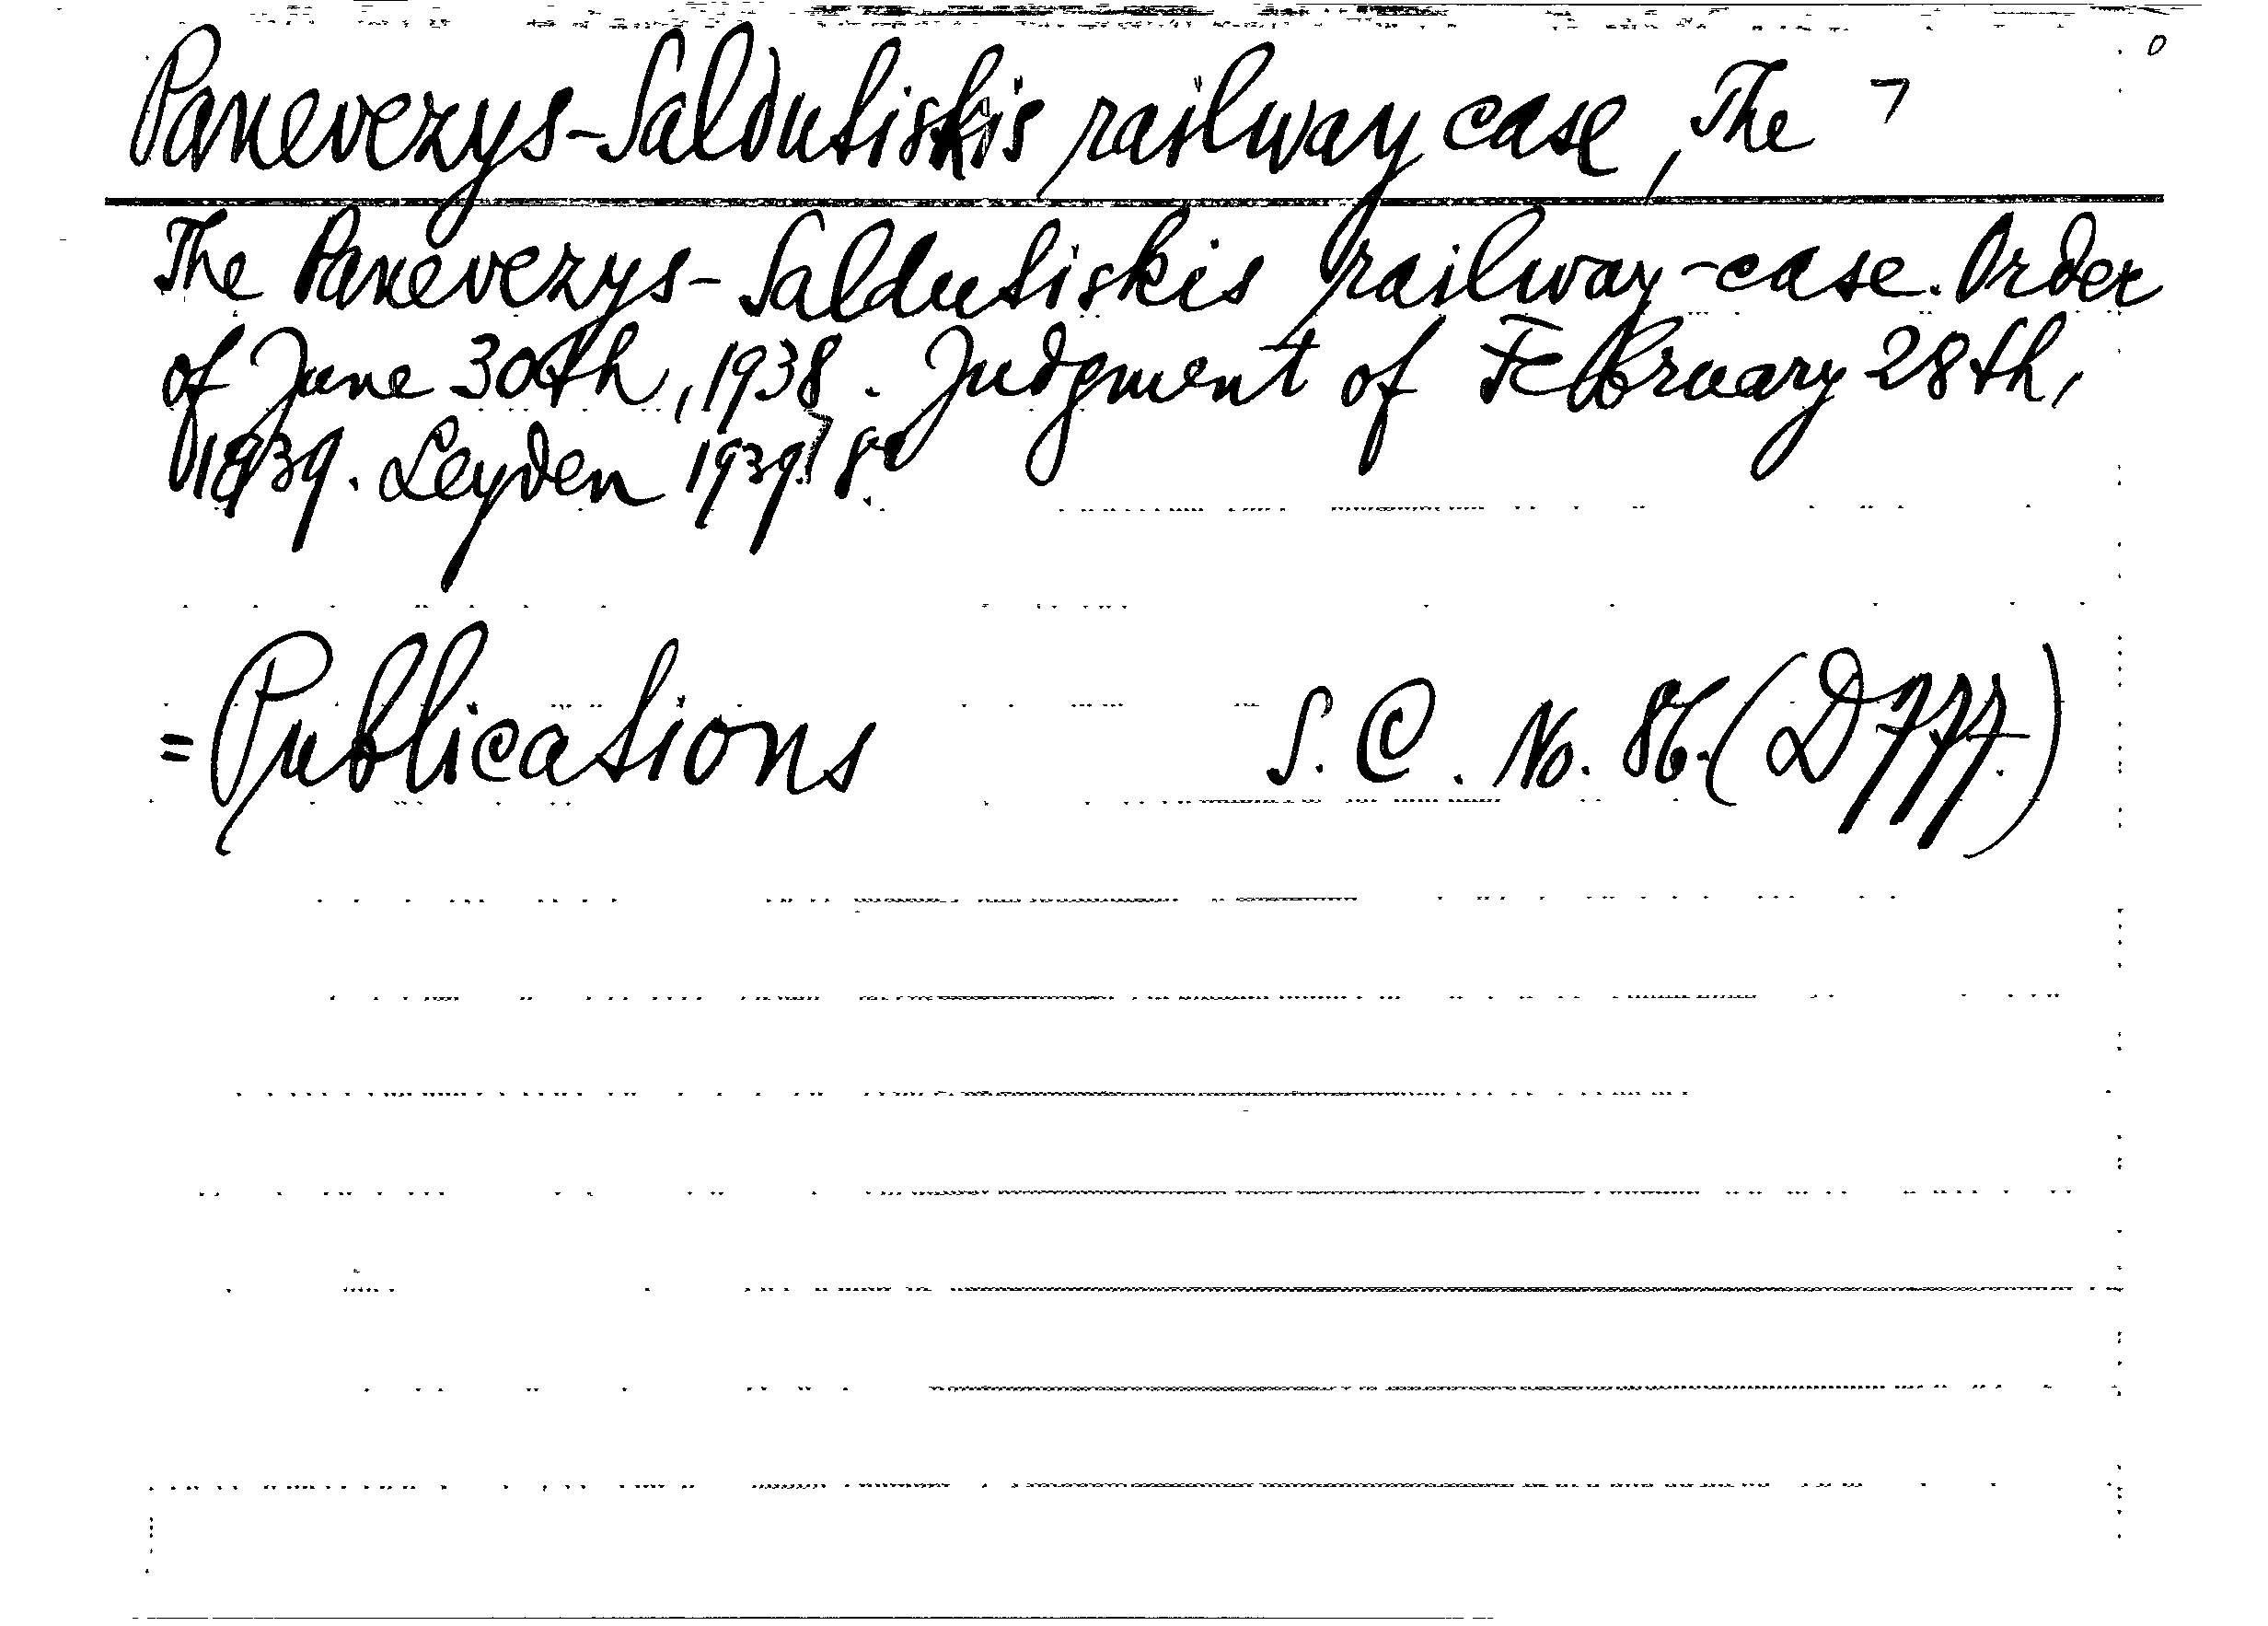 Panevezys-Saldutiskis railway case, The
The Panevezys-Saldutiskis railway-case. Order
of June 30th, 1938. Judgment of February 28th,
1939. Leyden 1939. 8°
= Publications S. C. No. 86. (D777.)